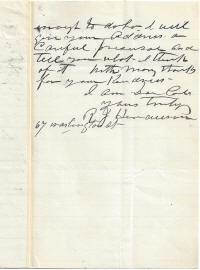 enough to do so I will
give your Address a
Careful perusal and
tell you what I think
of it with Many thanks
for your Kindness
I am Dear
yours truly
67 Washington st